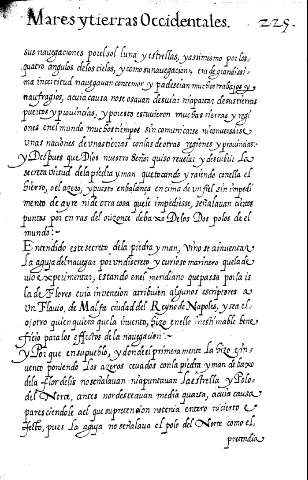 Mares y tierras Occidentales. 225.
sus navegaciones por el sol luna y estrellas, y assimismo por los,
quatro angulos de los cielos, y como su navegacion, era de grandissi-
ma incertitud navegauan con temor y padescian muchos trabajos y
naufragios, a cuia causa no se osauan desuiar ni apartar de sus tierras
puertos y prouincias, y por esto estuuieron muchas tierras y regi
ones en el mundo muchos tiempos sin comunicarse ni conuersarse
unas naciones de unas tierras con las de otras regiones y prouincias:
y Despues que Dios nuestro Señor quiso reuelar y descubrir La
secreta virtud de la piedra yman que tocando y raiendo con ella el
hierro, o el azero, y puesto en balança en cima de un fiel sin impedi
mento de ayre ni de otra cosa que le impidiesse, señalauan ciertos
puntos por cima del orizonte debaxo De los Dos polos de el
mundo:
Entendido este secreto de la piedra yman, vino se a inuentar
La aguja del nauegar por un discreto y curioso marinero que la de
uio experimentar, estando en el meridiano que passa por la is
la de Flores cuia inuencion atribuien algunos escriptores a
un Flauio, de Malfa ciudad del Reyno de Napoles, y sea el
o otro quien quiera que la inuento, hizo en ello inestimable bene
ficio para los effectos de la nauegacion:
y Por que en su pueblo, y donde el primeramente La hizo e in
uento poniendo Los azeros ceuados con la piedra yman debaxo
de la flor de lis no señalauan ni apuntauan La estrella y Polo
del Norte, antes nordesteauan media quarta, a cuia causa
paresciendole a el que su pretension no tenia entero ni cierto e
fecto, pues La aguja no señalaua el polo del Norte como el,
pretendia